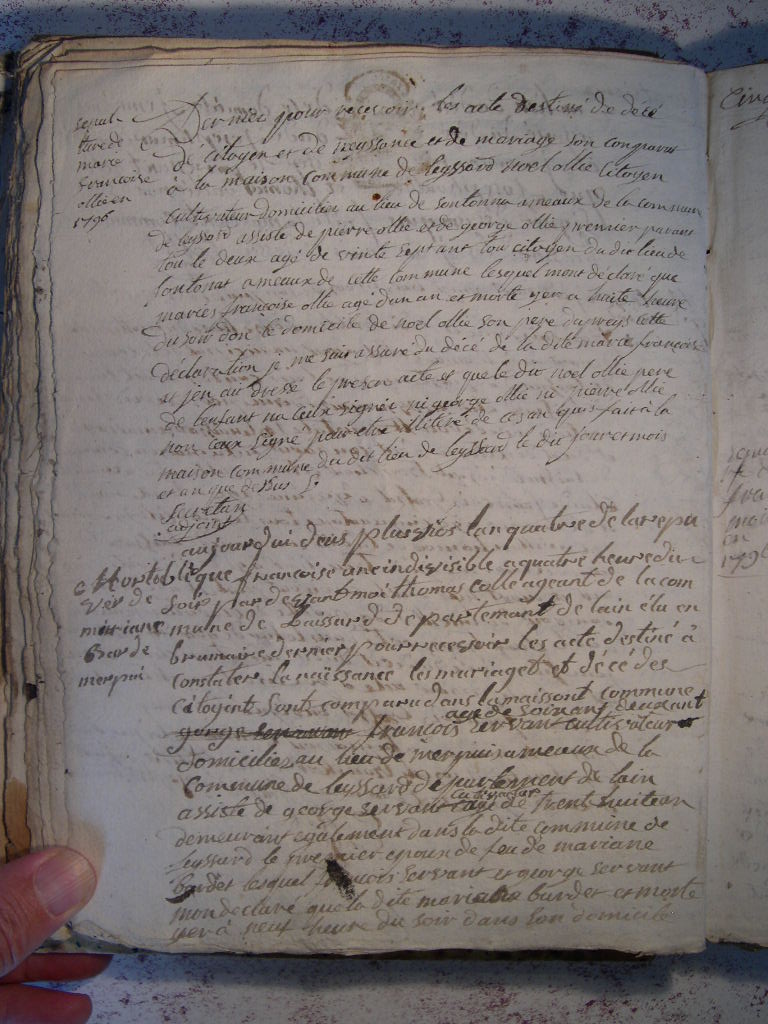 sepul-
ture de
marie
francoise
ollie en
1796
Dernier pour recevoir les acte destiné de décé
de citoyen et de neyssance et de mariage son comparus
à la maison commune de leyssard noel ollie citoyen
cultivateur domicilie au lieu de sontonna ameaux de la commune
de leyssard assisté de pierre ollie et de george ollie premier parans
tou le deux agé de vinte sept ant tou citoyen du dit lieu de
sontonat ameaux de cette commune lesquel mont déclaré que
maries francoise ollie agé dun an et morte yer a huite heure
du soir don le domicile de noel ollie son pere dapreys cette
declaration je me suis assuré du décé de la dite marie francoise
et jen ait dressé le presen acte et que le dit noel ollie pere
de lenfant na ceilx signer ni george ollie ni pierre ollie
non ceux signé pour etre illitéré de ce an quis fait à la
maison commune du dit lieu de leyssard le dit jour et mois
et an que desus
adjoint
aujourdui deus pluvios lan quatre de la repu
blique francoise une indivisible a quatre heure du
soir par devant moi thomas colle ageant de la com
mune de Laissard departement de lain élu en
brumaire dernier pour recevoir les acte destiné à
constater la naissance les mariaget et décé des
citoyent sont comparu dans la maissont commune
agé de soixant deux ant
gorge servant francois servant cultivateur
domicilie au lieu de merpuis ameaux de la
commune de leyssard departement de lain
assisté de george servant cultivateur agé de trent huite an
demeurant egalement dans la dite commune de
leyssard le premier epoux de feu de mariane
bardet lesquel francois servant et george servant
mon declaré que la dite mariane bardet et morte
yer à neuf heure du soir dans son domicile
Mort
de
mariane
Barde
merpui
1796